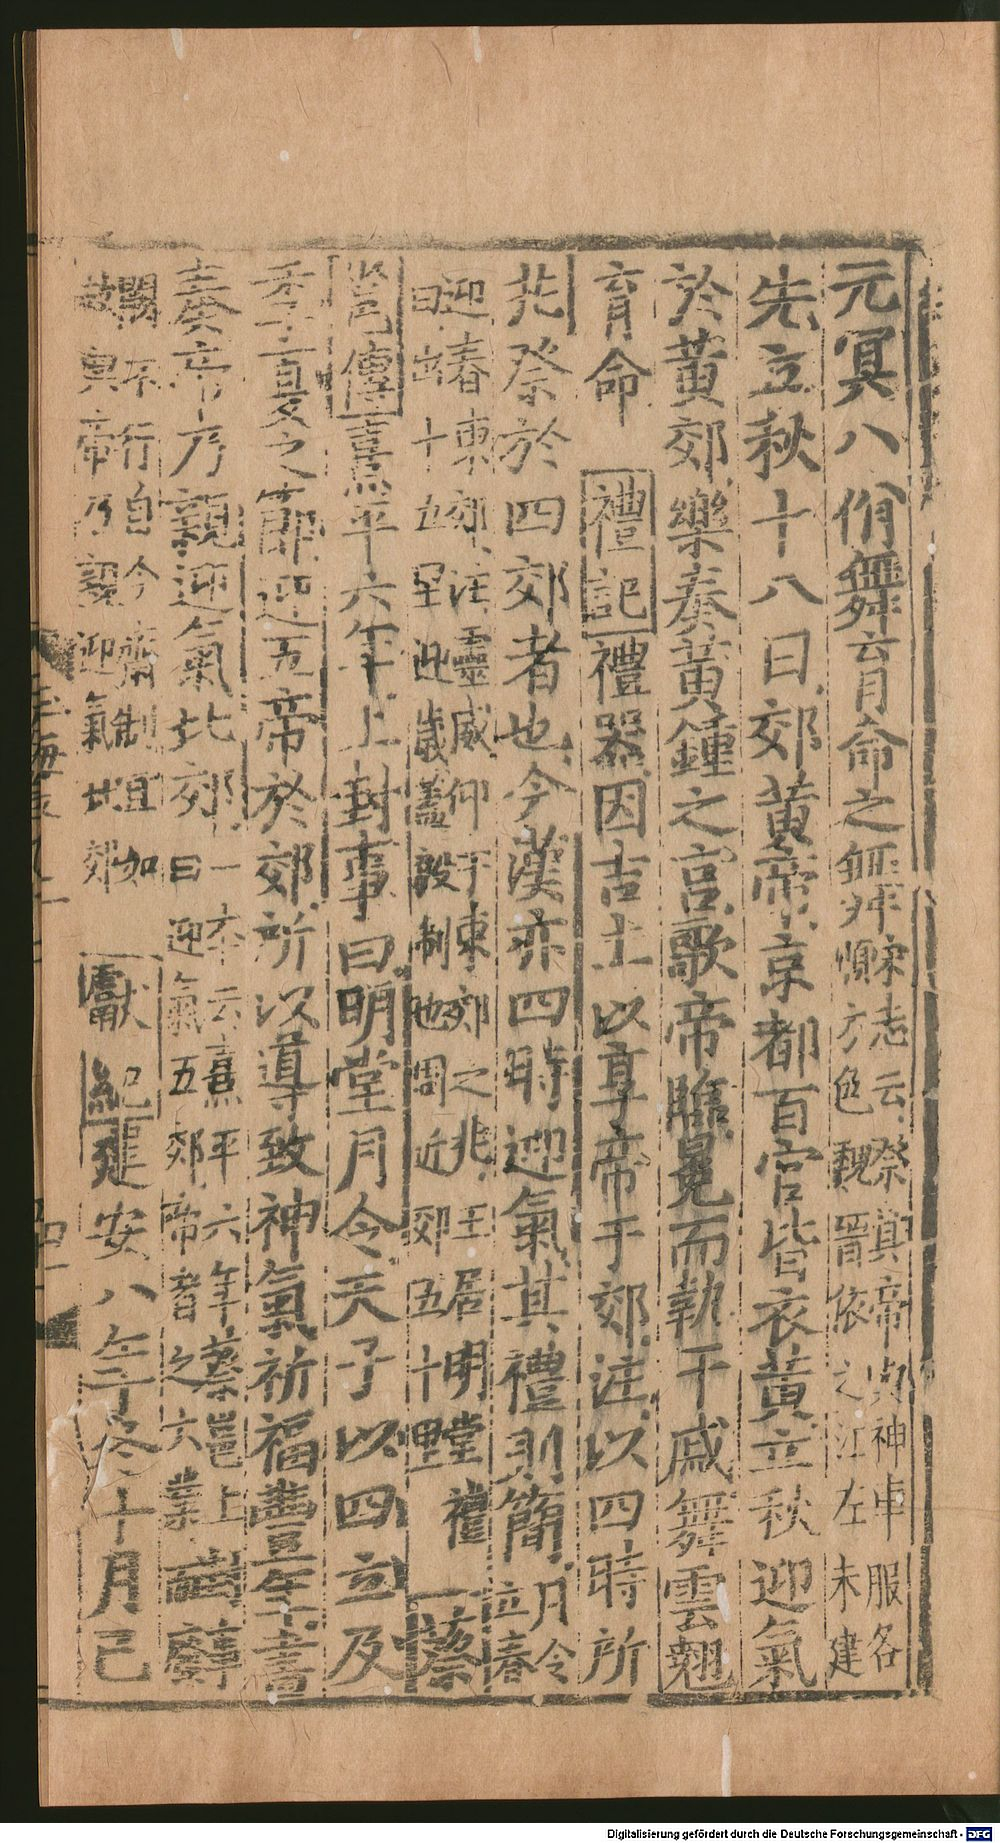 元冥八佾舞云育命之舞宋志云祭其帝其神車服各順方色魏晋依之江左未建
先立秋十八日郊黄帝京都百官皆衣黄立秋迎氣
於黄郊樂奏黄鍾之宫歌帝臨冕而執干戚舞雲翹
育命 禮記禮器因吉土以享帝于郊注以四時所
兆祭於四郊者也今漢亦四時迎氣其禮則簡月令立春
迎春東郊注靈威仰于東郊之兆王居明堂禮曰出十五里迎歲蓋殷制也周近郊五十里 蔡
邕傳熹平六年上封事曰明堂月令天子以四立及
季夏之節迎五帝於郊所以導致神氣祈福豐年書
奏帝乃親迎氣北郊一本云熹平六年蔡邕上曰迎氣五郊帝
闕不行自今齋制宜如故典帝乃親迎氣北郊 獻紀建安八年冬十月己
玉海
Digitalisierung gefördert durch die Deutsche Forschungsgemeinschaft - DFG